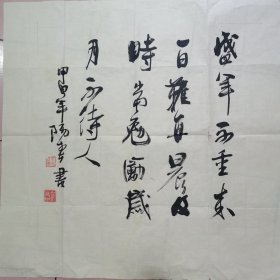 盛年不重来
一日難再晨及
時當勉勵歲
月不待人
甲申年陽書